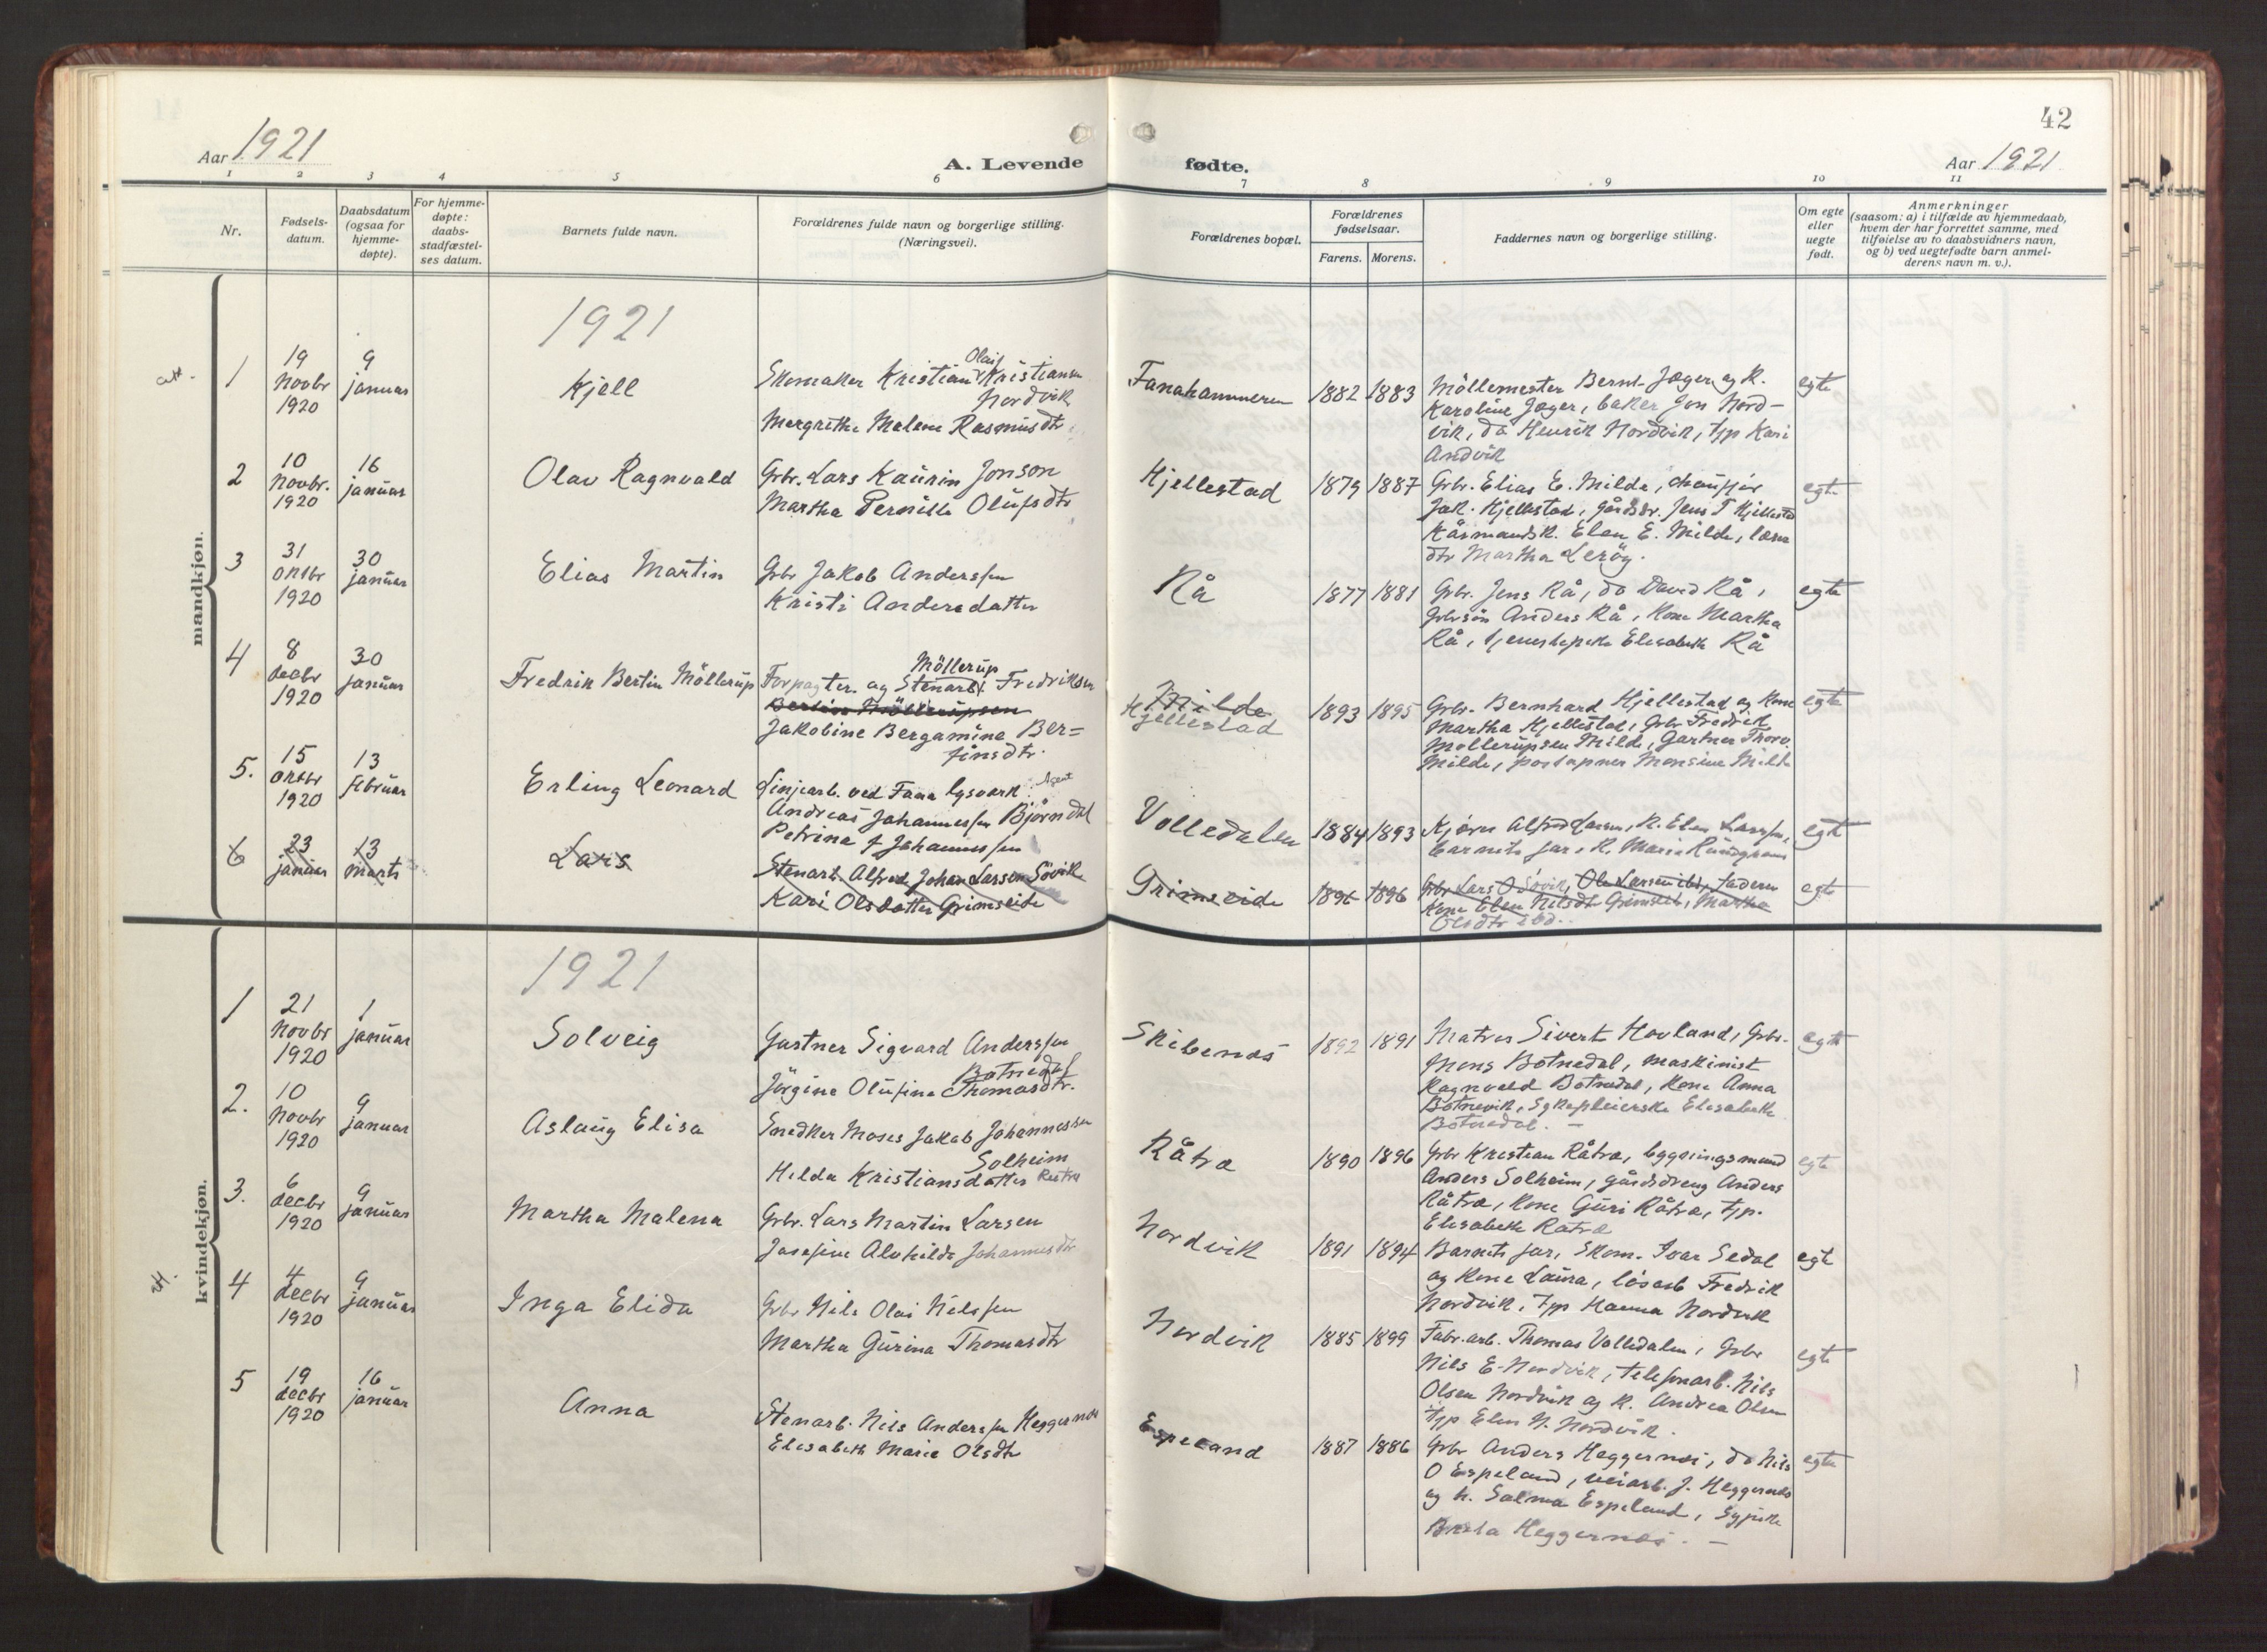 42
Aar 1921
A. Levende
fødte.
Aar 1921
1 2 3 4 5 6 7 8 9 10 11
Nr.
Fødsels-
datum.
Daabsdatum
(ogsaa for
hjemme-
døpte).
For hjemme-
døpte:
daabs-
stadfæstel-
ses datum.
Barnets fulde navn.
Forældrenes fulde navn og borgerlige stilling.
(Næringsvei).
Forældrenes bopæl.
Forældrenes
fødselsaar.
Farens. Morens.
Faddernes navn og borgerlige stilling.
Om egte
eller
uegte
født.
Anmerkninger
(saasom: a) i tilfælde av hjemmedaab,
hvem der har forrettet samme, med
tilføielse av to daabsvidners navn,
og b) ved uegtefødte barn anmel-
derens navn m. v.).
mandkjøn.
1921
att.
1
19
Novbr
1920
9
januar
Kjell
Olai
Skomaker Kristian Kristiansen
Nordvik
Margrethe Malene Rasmusdtr.
Fanahammeren
1882 1883
Möllemester Bernt Jæger og K.
Karoline Jæger, baker Jon Nord-
vik, do Henrik Nordvik, tjp Kari
Andvik
egte
2
10
Novbr.
1920
16
januar
Olav Ragnvald
Grbr. Lars Kaurin Jonson
Martha Pernille Olufsdtr
Hjellestad
1879 1887
Grbr. Elias E. Milde, chauffør
Jak. Hjellestad, gårdbr. Jens T Hjellestad
Kårmandsk. Elen E. Milde, lærer
dtr Martha Lerøy.
egte
3
31
Oktbr
1920
30
januar
Elias Martin
Grbr Jakob Anderssen
Kristi Andersdatter
Rå
1877 1881
Grbr. Jens Rå, do David Rå,
Grbrsøn Anders Rå, Kone Martha
Rå, tjenestepike Elisabeth Rå
egte
4
8
decbr
1920
30
januar
Fredrik Bertin Möllerup
Möllerup
Forpagter og Stenarb. Fredriksen
Bertin Möllerupsen
Jakobine Bergamine Ber=
finsdtr.
Milde
Hjellestad
1893 1895
Grbr. Bernhard Hjellestad og Kone
Martha Hjellestad, Grbr Fredrik
Möllerupsen Milde, Gartner Thorv.
Milde, postapner Monsine Milde
egte
5.
15
Oktbr
1920
13
februar
Erling Leonard
Linjearb. ved Fana lysverk. Agent
Andreas Johannessen Björndal
Petrina J Johannessen
Volledalen
1884 1893
Kjörer Alfred Larsen, K. Elen Larssen,
barnets far, K. Marie Rundhovde
egte
6
23
januar
13
Marts
Lars
Stenarb. Alfred Johan Larsen Søvik
Kari Olsdatter Grimseide
Grimseide
1896 1896
Grbr Lars O Søvik, Ole Larsen ibid, faderen
Kone Elen Nilsdtr Grimseid, Martha
Olsdtr ibd.
egte
kvindekjøn.
1921
1
21
Novbr
1920
1
januar
Solveig
Gartner Sigvard Anderssen
Botnedal
Jörgine Olufine Thomasdtr.
Skibenes
1892 1891
Matros Sivert Hovland, Grbr.
Mons Botnedal, maskinist
Ragnvald Botnedal, Kone Anna
Botnevik, Sykepleierske Elisabeth
Botnedal.
egte
2.
10
Novbr
1920
9
januar
Aslaug Elisa
Snedker Moses Jakob Johannessen
Solheim
Hilda Kristiansdatter Raatræ
Råtræ
1890 1896
Grbr Kristian Råtræ, bygningsmand
Anders Solheim, gårdsdreng Anders
Råtræ, Kone Guri Råtræ, tjp.
Elisabeth Råtræ
egte
3.
6
decbr
1920
9
januar
Martha Malena
Grbr. Lars Martin Larsen
Josefine Alvhilde Johannesdtr
Nordvik
1891 1894
Barnets far, Skom. Ivar Sedal
og Kone Laura, løsarb Fredrik
Nordvik, tjp Hanna Nordvik
egte
att.
4
4
decbr
1920
9
januar
Inga Elida
Grbr Nils Olai Nilssen
Martha Gurina Thomasdtr
Nordvik
1885 1899
Fabr.arb. Thomas Volledalen, Grbr
Nils E. Nordvik, telefonarb. Nils
Olsen Nordvik og K. Andrea Olsen
tjp Elen N. Nordvik.
egte
5
19
decbr
1920
16
januar
Anna
Stenarb. Nils Anderssen Heggernes
Elisabeth Marie Olsdtr
Espeland
1887 1886
Grbr Anders Heggernes, do Nils
O Espeland, veiarb. J. Heggernes
og k. Salma Espeland, Sypike
Brita Heggernes.
egte